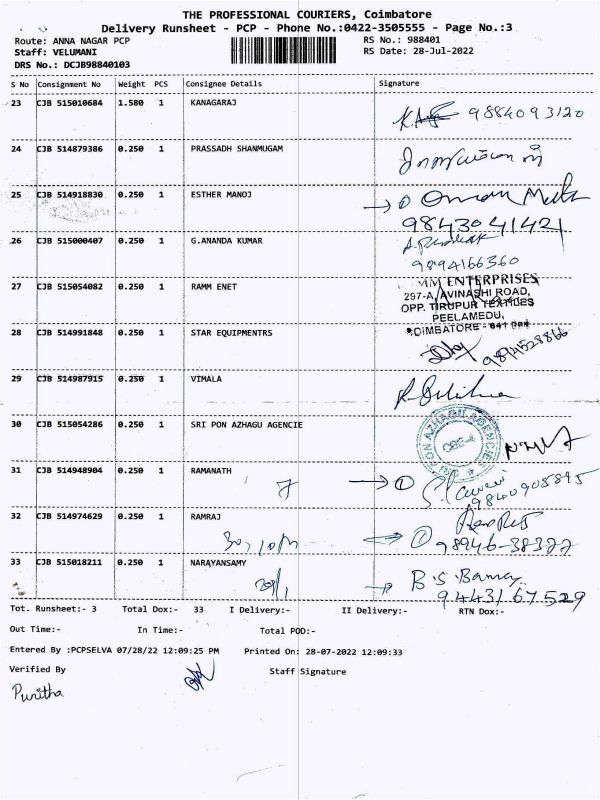 THE PROFESSIONAL COURIERS, Coimbatore
Delivery Runsheet - PCP - Phone No.:0422-3505555 - Page No.:3
Route: ANNA NAGAR PCP RS No.: 988401
Staff: VELUMANI RS Date: 28-Jul-2022
DRS No.: DCJB98840103
S No Consignment No Weight PCS Consignee Details Signature
23 CJB 515010684 1.580 1 KANAGARAJ 9884093120
24 CJB 514879386 0.250 1 PRASSADH SHANMUGAM
25 CJB 514918830 0.250 1 ESTHER MANOJ
9843041421
26 CJB 515000407 0.250 1 G.ANANDA KUMAR
9894166360
27 CJB 515054082 0.250 1 RAMM ENET
MM ENTERPRISES
297-A, AVINASHI ROAD,
OPP. TIRUPUR TEXTILES
PEELAMEDU,
COIMBATORE -
28 CJB 514991848 0.250 1 STAR EQUIPMENTRS
29 CJB 514987915 0.250 1 VIMALA
30 CJB 515054286 0.250 1 SRI PON AZHAGU AGENCIE
SRI PON AZHAGU AGENCIES
CBE-4
31 CJB 514948904 0.250 1 RAMANATH
9840908895
32 CJB 514974629 0.250 1 RAMRAJ
98946-38377
33 CJB 515018211 0.250 1 NARAYANSAMY
9443167529
Tot. Runsheet:- 3 Total Dox:- 33 I Delivery:- II Delivery:- RTN Dox:-
Out Time:- In Time:- Total POD:-
Entered By :PCPSELVA 07/28/22 12:09:25 PM Printed On: 28-07-2022 12:09:33
Verified By Staff Signature
Punitha